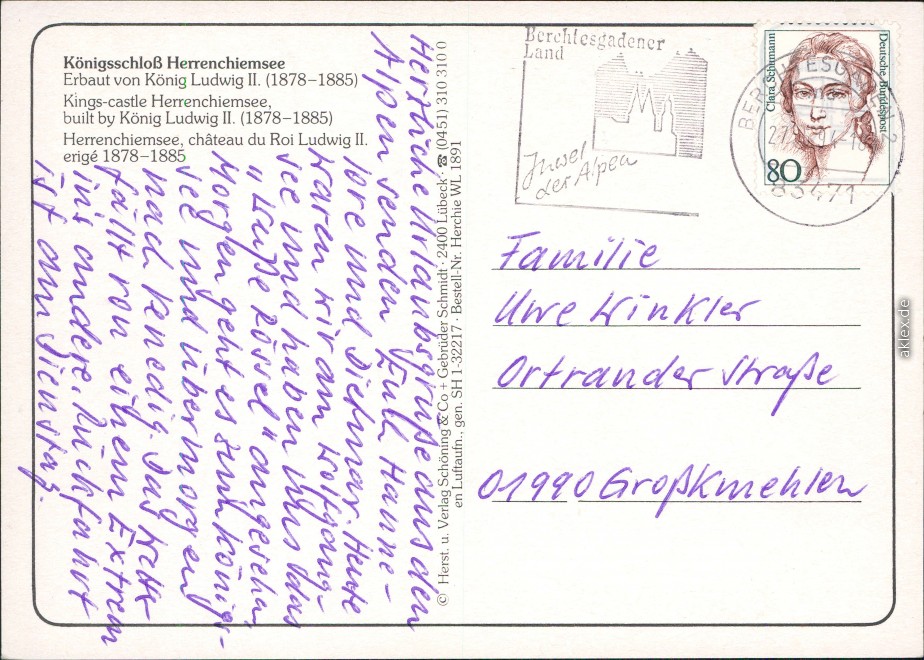 Königsschloß Herrenchiemsee
Erbaut von König Ludwig II. (1878–1885)
Kings-castle Herrenchiemsee,
built by König Ludwig II. (1878–1885)
Herrenchiemsee, château du Roi Ludwig II.
erigé 1878–1885
Herzliche Urlaubsgrüße aus den
Alpen senden Euch Hanne-
lore und Dietmar. Heute
waren wir am Wolfgang-
see und haben uns das
"Weiße Rössel" angesehn,
Morgen geht es zum Königs-
see und übermorgen
nach Venedig. Das Wetter
fällt von einem Extrem
ins andere. Rückfahrt
ist am Dienstag.
© Herst. u. Verlag Schöning & Co + Gebrüder Schmidt · 2400 Lübeck · ☎ (0451) 310 310 0
en Luftaufn., gen. SH 1-32217 · Bestell-Nr. Herchie WL 1891
Berchtesgadener
Land
Insel
der Alpen
Clara Schumann
Deutsche Bundespost
80
83471
Familie
Uwe Winkler
Ortrander Straße
01990 Großkmehlen
aklex.de